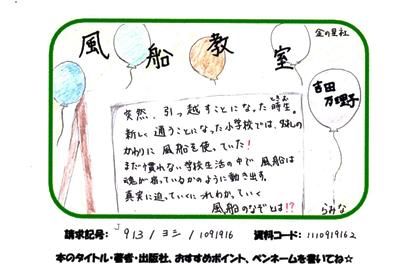 風船教室
金の星社
吉田
万理子
突然、引っ越すことになった時生。
ときお
新しく通うことになった小学校では、
かわりに風船を使っていた!
まだ慣れない学校生活の中で風船は
魂が宿っているかのように動き出す。
真実に迫っていくにつれわかっていく
風船のなぞとは!?
らみな
請求記号: J 913/ヨシ/1091916
資料コード: 1110919162
本のタイトル・著者・出版社、おすすめポイント、ペンネームを書いてね☆